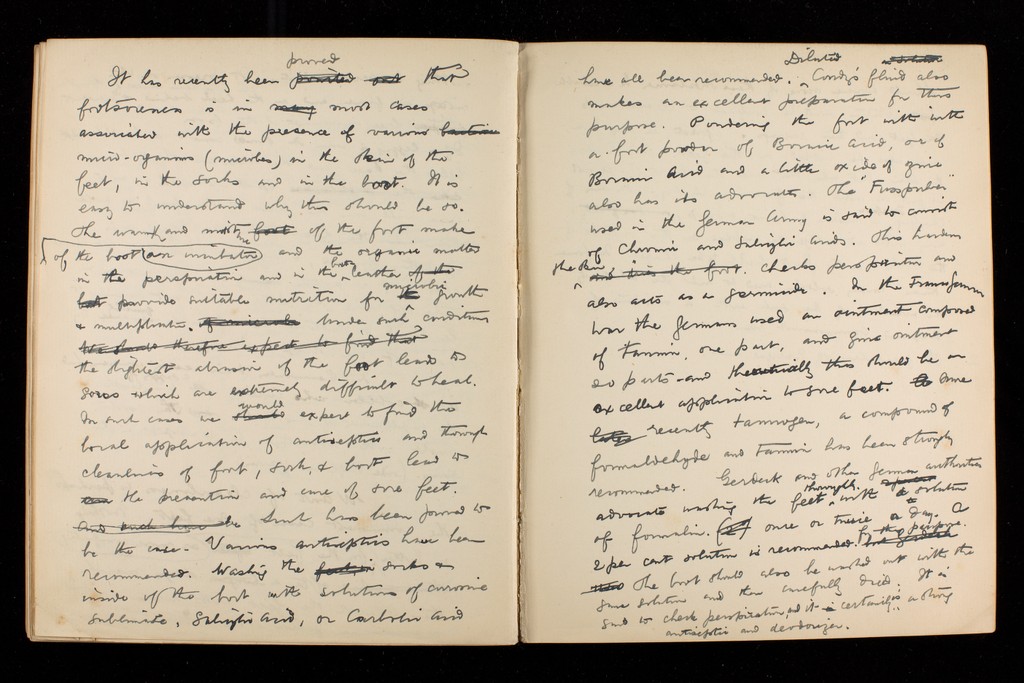 proved
It has recently been that
footsoreness is in most cases
associated with the presence of various
micro-organisms (microbes) in the skin of the
feet, in the socks and in the boot. It is
easy to understand why this should be so.
The warmth and moisture of the foot make
of the boot (an incubator) and the organic matter
in the perspiration and in the leather of the
boot provide suitable nutrition for microbic growth
& multiplication. Under such conditions
the slightest abrasion of the foot leads to
sores which are extremely difficult to heal.
In such cases we would expect to find the
local application of antiseptics and thorough
cleanliness of foot, sock, & boot lead to
the prevention and cure of sore feet.
Such has been found to
be the case. Various antiseptics have been
recommended. Washing the socks &
inside of the boot with solutions of corrosive
sublimate, Salicylic Acid, or Carbolic Acid
Diluted
have all been recommended. Condy's fluid also
makes an excellent preparation for this
purpose. Powdering the foot with
a foot powder of Boracic Acid, or of
Boracic Acid and a little oxide of zinc
also has its advocates. The "Fusspulver"
used in the German Army is said to consist
of Chromic and Salicylic acids. This hardens
the skin checks perspiration and
also acts as a germicide. In the Franco German
War the Germans used an ointment composed
of Tannin, one part, and Zinc ointment
20 parts - and theoretically this should be an
excellent application to sore feet. More
recently Tannogen, a compound of
formaldehyde and Tannin has been strongly
recommended. and other German authorities
advocate washing the feet thoroughly with a solution
of formalin. once or twice a day. A
2 per cent solution is recommended for this purpose.
The boot should also be washed out with the
same solution and then carefully dried. It is
said to check perspiration, and it is certainly a strong
antiseptic and deodorizer.